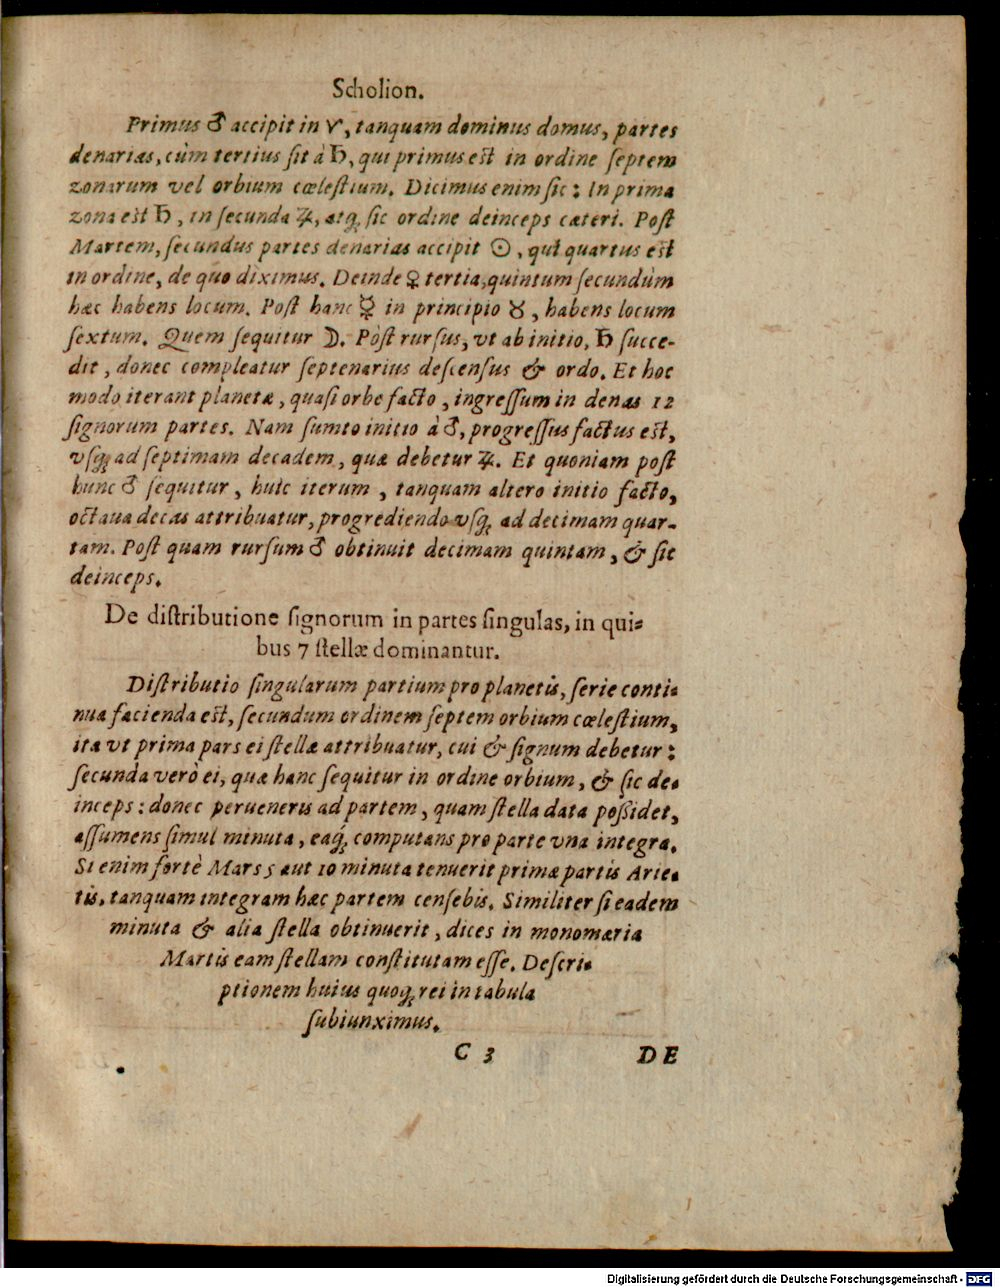 Scholion.
Primus ♂ accipit in ♈, tanquam dominus domus, partes
denarias, cùm tertius ſit à ♄, qui primus est in ordine ſeptem
zonarum vel orbium cœleſtium. Dicimus enim ſic: In prima
zona est ♄, in ſecunda ♃, atq; ſic ordine deinceps cæteri. Poſt
Martem, ſecundus partes denarias accipit ☉, qui quartus est
in ordine, de quo diximus. Deinde ♀ tertia, quintum ſecundùm
hæc habens locum. Poſt hanc ☿ in principio ♉, habens locum
ſextum. Quem ſequitur ☽. Pòſt rurſus, vt ab initio, ♄ succe-
dit, donec compleatur ſeptenarius deſcenſus & ordo. Et hoc
modo iterant planetæ, quaſi orbe facto, ingreſſum in denas 12
ſignorum partes. Nam ſumto initio à ♂, progreſſus factus est,
vſq; ad ſeptimam decadem, quæ debetur ♃. Et quoniam poſt
hunc ♂ ſequitur, huic iterum, tanquam altero initio facto,
octaua decas attribuatur, progrediendo vſq; ad decimam quar-
tam. Poſt quam rurſum ♂ obtinuit decimam quintam, & ſic
deinceps.
De diſtributione ſignorum in partes ſingulas, in qui-
bus 7 ſtellæ dominantur.
Diſtributio ſingularum partium pro planetis, ſerie conti-
nua facienda est, ſecundum ordinem ſeptem orbium cœleſtium,
ita vt prima pars ei ſtellæ attribuatur, cui & ſignum debetur:
ſecunda verò ei, quæ hanc ſequitur in ordine orbium, & ſic de-
inceps: donec perueneris ad partem, quam ſtella data poßidet,
aſſumens ſimul minuta, eaq́; computans pro parte vna integra.
Si enim fortè Mars 5 aut 10 minuta tenuerit primæ partis Arie-
tis, tanquam integram hæc partem cenſebis. Similiter ſi eadem
minuta & alia ſtella obtinuerit, dices in monomæria
Martis eam ſtellam conſtitutam eſſe. Deſcri-
ptionem huius quoq; rei in tabula
ſubiunximus.
C 3 DE
Digitalisierung gefördert durch die Deutsche Forschungsgemeinschaft - DFG